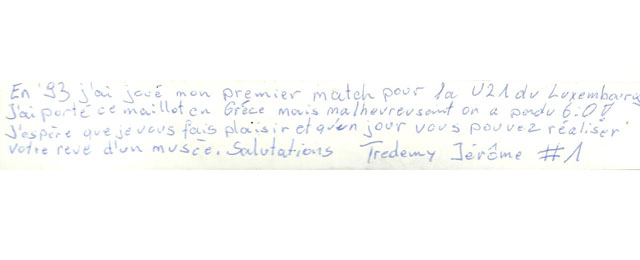 En '93 j'ai joué mon premier match pour la U21 du Luxembourg
J'ai porté ce maillot en Grèce mais malheureusement on a perdu 6:0
J'espère que je vous fais plaisir et qu'un jour vous pouvez réaliser
votre reve d'un musée. Salutations Tredemy Jérôme #1